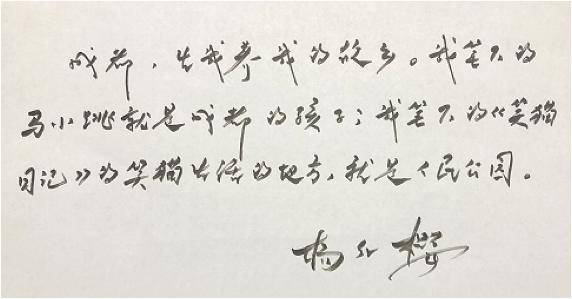 成都，生我养我的故乡。我笔下的
马小跳就是成都的孩子；我笔下的《笑猫
日记》的笑猫生活的地方，就是人民公园。
杨红樱